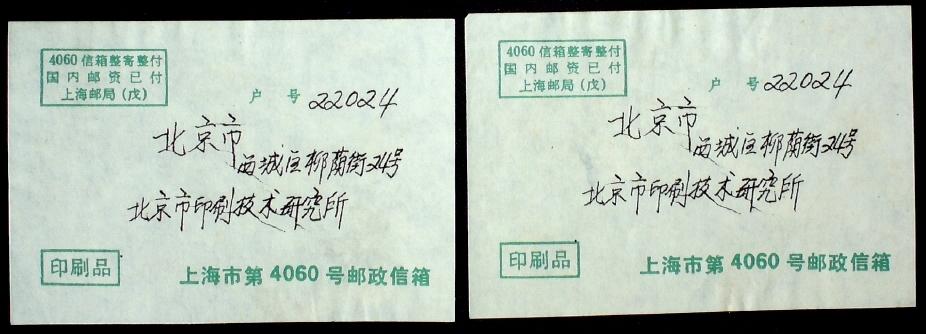 4060信箱整寄整付
国内邮资已付
上海邮局(戊)
户 号 22024
北京市
西城区柳荫街24号
北京市印刷技术研究所
印刷品
上海市第4060号邮政信箱
4060信箱整寄整付
国内邮资已付
上海邮局(戊)
户 号 22024
北京市
西城区柳荫街24号
北京市印刷技术研究所
印刷品
上海市第4060号邮政信箱